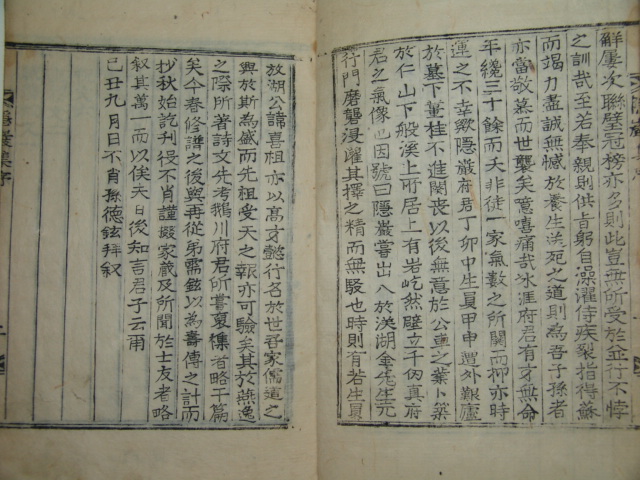 鮮屢次聯璧冠榜亦多則此豈無所受於並行不悖
之訓哉至若奉親則供旨躬自澡濯侍疾裂指得蘇
而竭力盡誠無憾於養生送死之道則為吾子孫者
亦當敬慕而世襲矣噫嘻痛哉氷涯府君有才無命
年纔三十餘而夭非徒一家氣數之所關而抑亦時
運之不幸歟隱巖府君丁卯中生員甲申遭外艱廬
於墓下董桂不進闋喪以後無意於公車之業卜築
於仁山下般溪上所居上有岩屹然壁立千仞真府
君之氣像也因號曰隱巖嘗出入於渼湖金先生元
行門磨礱浸灌其擇之精而無駁也時則有若生員
放湖公諱喜祖亦以高才懿行名於世吾家儒道之
興於斯為盛而先祖受天之報亦可驗矣其於燕逸
之際所著詩文先考鵝川府君所嘗裒集者略干篇
矣今春修譜之後與再從弟需鉉以為壽傳之計而
抄秋始訖刊役不肖謹掇家蔵及所聞於士友者略
叙其萬一而以俟天日後知言君子云爾
己丑九月日不肖孫德鉉拜叙
隱巖集序